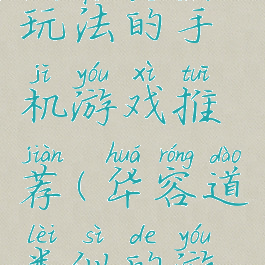 玩法的手
jī yóu xì tuī
机游戏推
jiàn huá róng dào
荐(华容道
lèi sì de yóu
类似的游